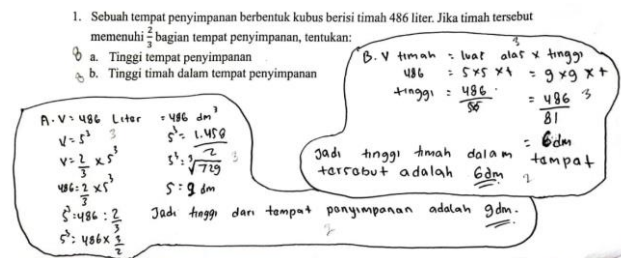 1. Sebuah tempat penyimpanan berbentuk kubus berisi timah 486 liter. Jika timah tersebut
memenuhi 2/3 bagian tempat penyimpanan, tentukan:
8 a. Tinggi tempat penyimpanan
8 b. Tinggi timah dalam tempat penyimpanan
A. V = 486 Liter = 486 dm³
V = S³ 3
V = 2/3 × S³
486 = 2/3 × S³
S³ = 486 : 2/3
S³ = 486 × 3/2
S³ = 1.458/2
S³ = ³√729 3
S = 9 dm
Jadi tinggi dari tempat penyimpanan adalah 9dm.
2
B. V timah = luas alas × tinggi 3
486 = S×S × t = 9×9 × t
tinggi = 486 = 486/81 3
= 6dm
Jadi tinggi timah dalam tempat
tersebut adalah 6dm 2